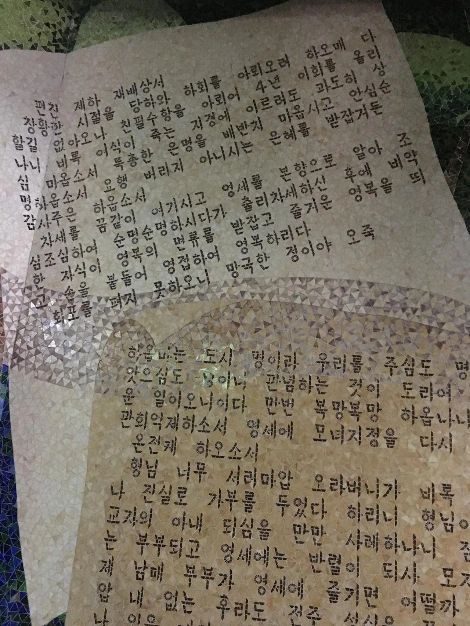 제하 재배상서 하회를 아뢰오려 하오매 다
시절을 당하와 아뢰어 4년 이회를 올리
친필수항을 지경에 이르러도 과도히 상
비록 이식이 죽는 배반치 마옵시고 안심
특총한 은명을 아니시는 은혜를 받잡거든
마옵소서 요행 버리지
하옵소서
꿈같이 여기시고 영세를 본향으로 알아 조
순명순명하시다가 출리차세하신 후에 비약
영복의 면류를 받잡고 즐거운 영복을 띄
자식이 영접하여 영복하리다
손을 붙들어
회포를 펴지 못하오니 망국한 정이야 오죽
하올마는 도시 명이라 우리를 주심도 명
앗으심도 명이니 관념하는 것이 도리어
운 일이오니이다 만번 복망복망 하옵나니
관회억제하소서 영세에 모녀지정을 다시
온전케 하오소서
형님 너무 서러마압 오라버니가 비록
나 진실로 가부를 두었다 하리니 형님이
교자의 아내 되심을 만만 사례하나니
는 부부되고 영세에는 반렬이 되사 모자
제 남매 부부가 영세에 즐기면 어떨까
압 내 없는 후라도 전주